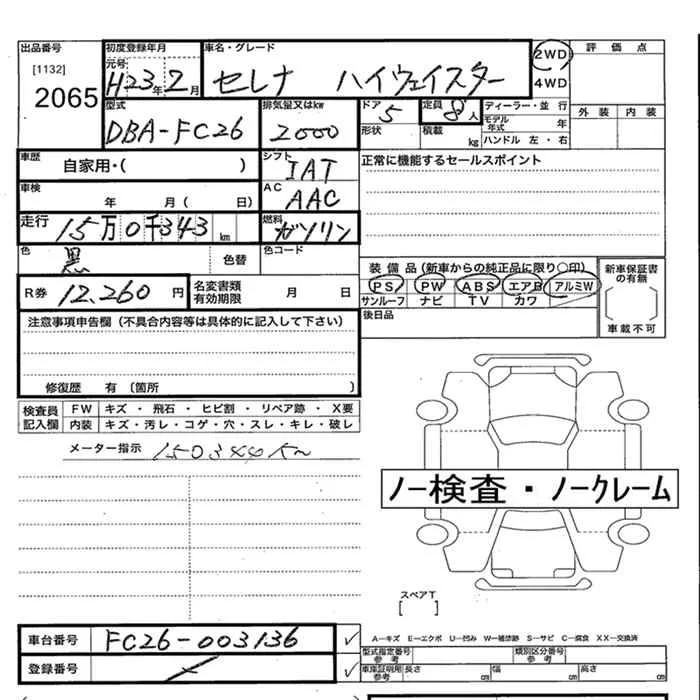 出品番号 初度登録年月 車名・グレード 2WD 評価点
[1132] 元号 H23年2月 セレナ ハイウェイスター 4WD
2065 外装 内装
型式 排気量又はkw ドア 5 定員 8人 ディーラー・並行
DBA-FC26 2000 形状 積載 kg モデル年式 年
ハンドル 左・右
車歴 自家用・( ) シフト IAT 正常に機能するセールスポイント
車検 年 月( 日) AC AAC
走行 15万0千343km 燃料 ガソリン
色 黒 色替 色コード
装備品(新車からの純正品に限り○印) 新車保証書の有無
R券 12,260円 名変書類有効期限 月 日 PS PW ABS エアB アルミW
サンルーフ ナビ TV カワ
注意事項申告欄(不具合内容等は具体的に記入して下さい) 後日品 車載不可
修復歴 有(箇所 )
検査員記入欄 FW キズ・飛石・ヒビ割・リペア跡・X要
内装 キズ・汚レ・コゲ・穴・スレ・キレ・破レ
メーター指示 150344km
ノー検査・ノークレーム
スペアT
[ ]
車台番号 FC26-003136 ✓ A-キズ E-エクボ U-凹み W-補修跡 S-サビ C-腐食 XX-交換済
型式指定番号参考 類別区分番号参考
登録番号 ✓ 車庫証明用参考 長さ cm 幅 cm 高さ cm